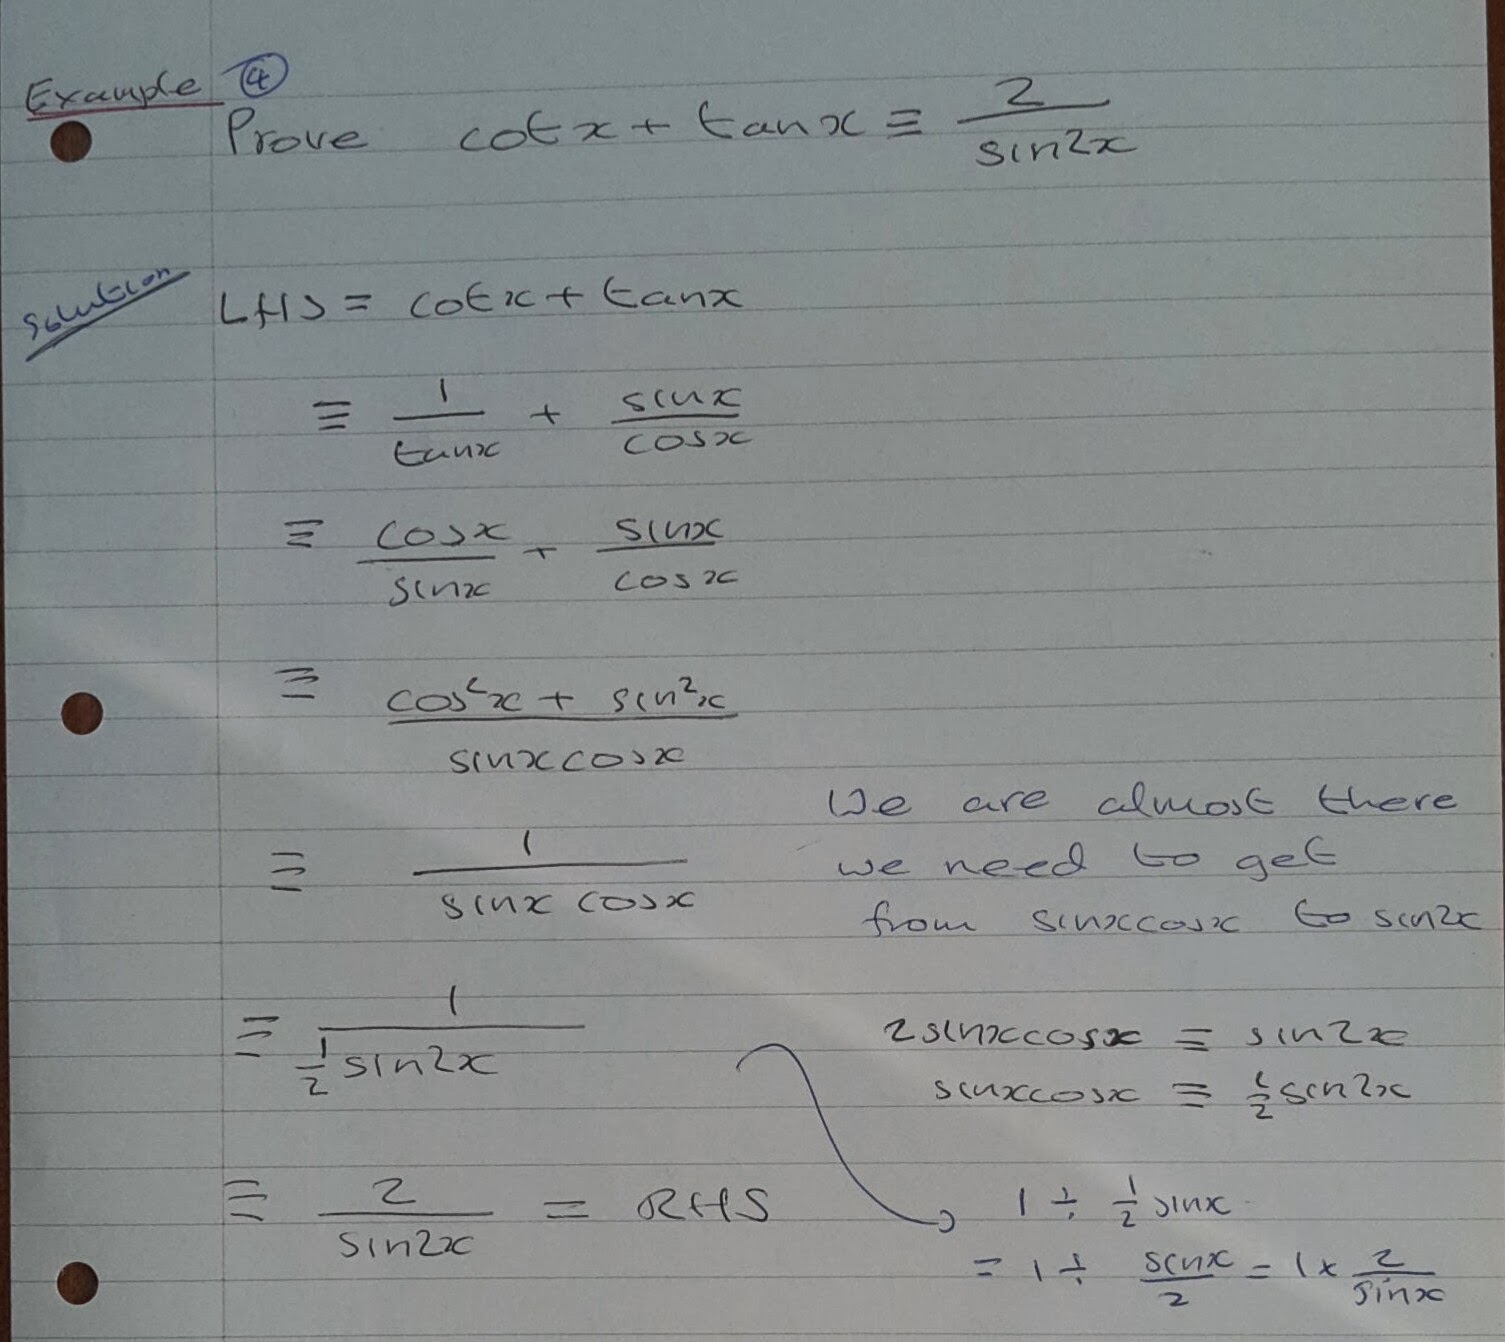 Example ④
Prove cotx + tanx ≡ 2/sin2x
Solution
LHS = cotx + tanx
≡ 1/tanx + sinx/cosx
≡ cosx/sinx + sinx/cosx
≡ (cos²x + sin²x)/(sinxcosx)
≡ 1/(sinx cosx)
We are almost there
we need to get
from sinxcosx to sin2x
≡ 1/(½ sin2x)
2sinxcosx ≡ sin2x
sinxcosx ≡ ½ sin2x
≡ 2/sin2x = RHS
1 ÷ ½ sinx
= 1 ÷ sinx/2 = 1 × 2/sinx